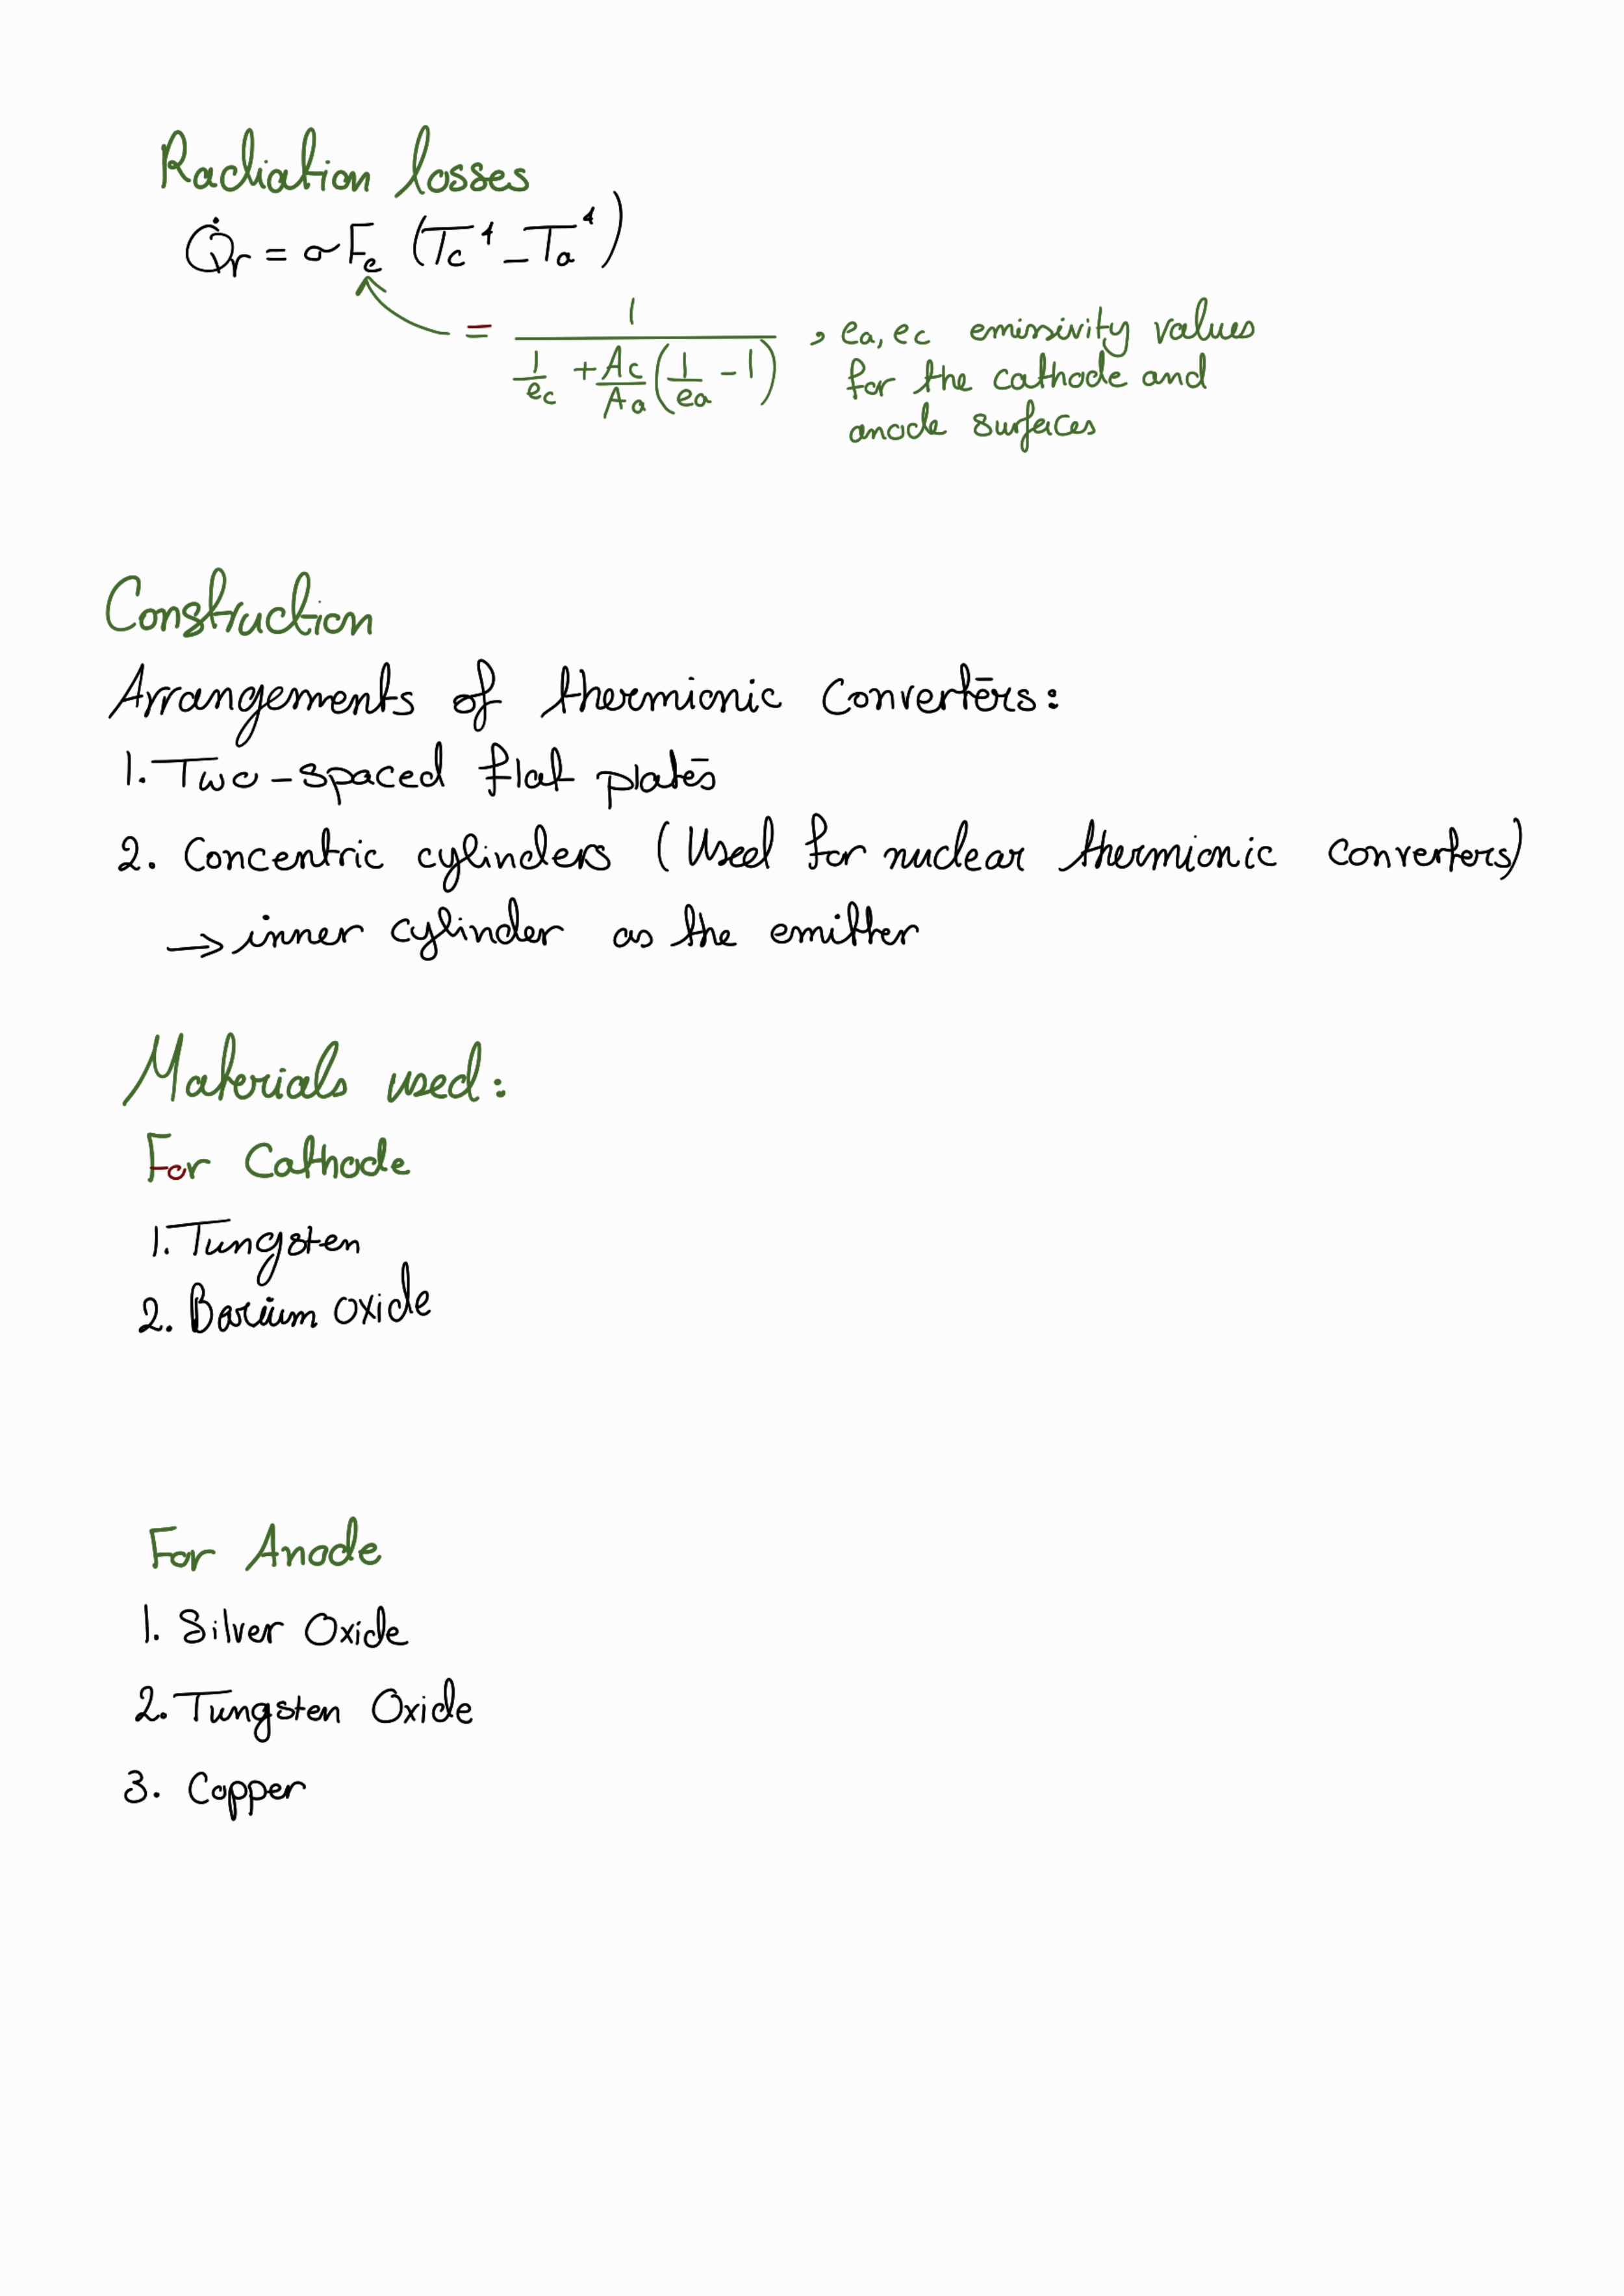 Radiation losses
Q̇r = σFe (Tc⁴ - Ta⁴)
= 1 / (1/ec + Ac/Aa (1/ea - 1)) , ea, ec emissivity values
for the cathode and
anode surfaces
Construction
Arrangements of thermionic Converters:
1. Two-spaced flat plates
2. Concentric cylinders (Used for nuclear thermionic converters)
→ inner cylinder as the emitter
Materials used:
For Cathode
1. Tungsten
2. Barium oxide
For Anode
1. Silver Oxide
2. Tungsten Oxide
3. Copper